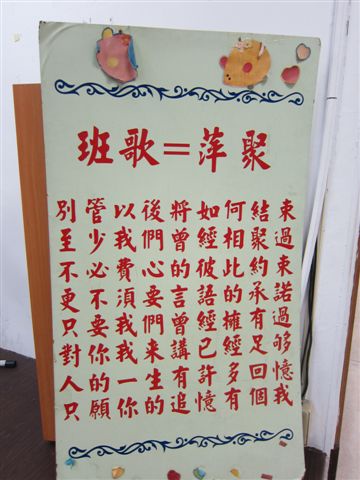 班歌＝萍聚
別管以後將如何結束
至少我們曾經相聚過
不必費心的彼此約束
更不須要言語的承諾
只要我們曾經擁有過
對你我來講已經足夠
人的一生有許多回憶
只願你的追憶有個我